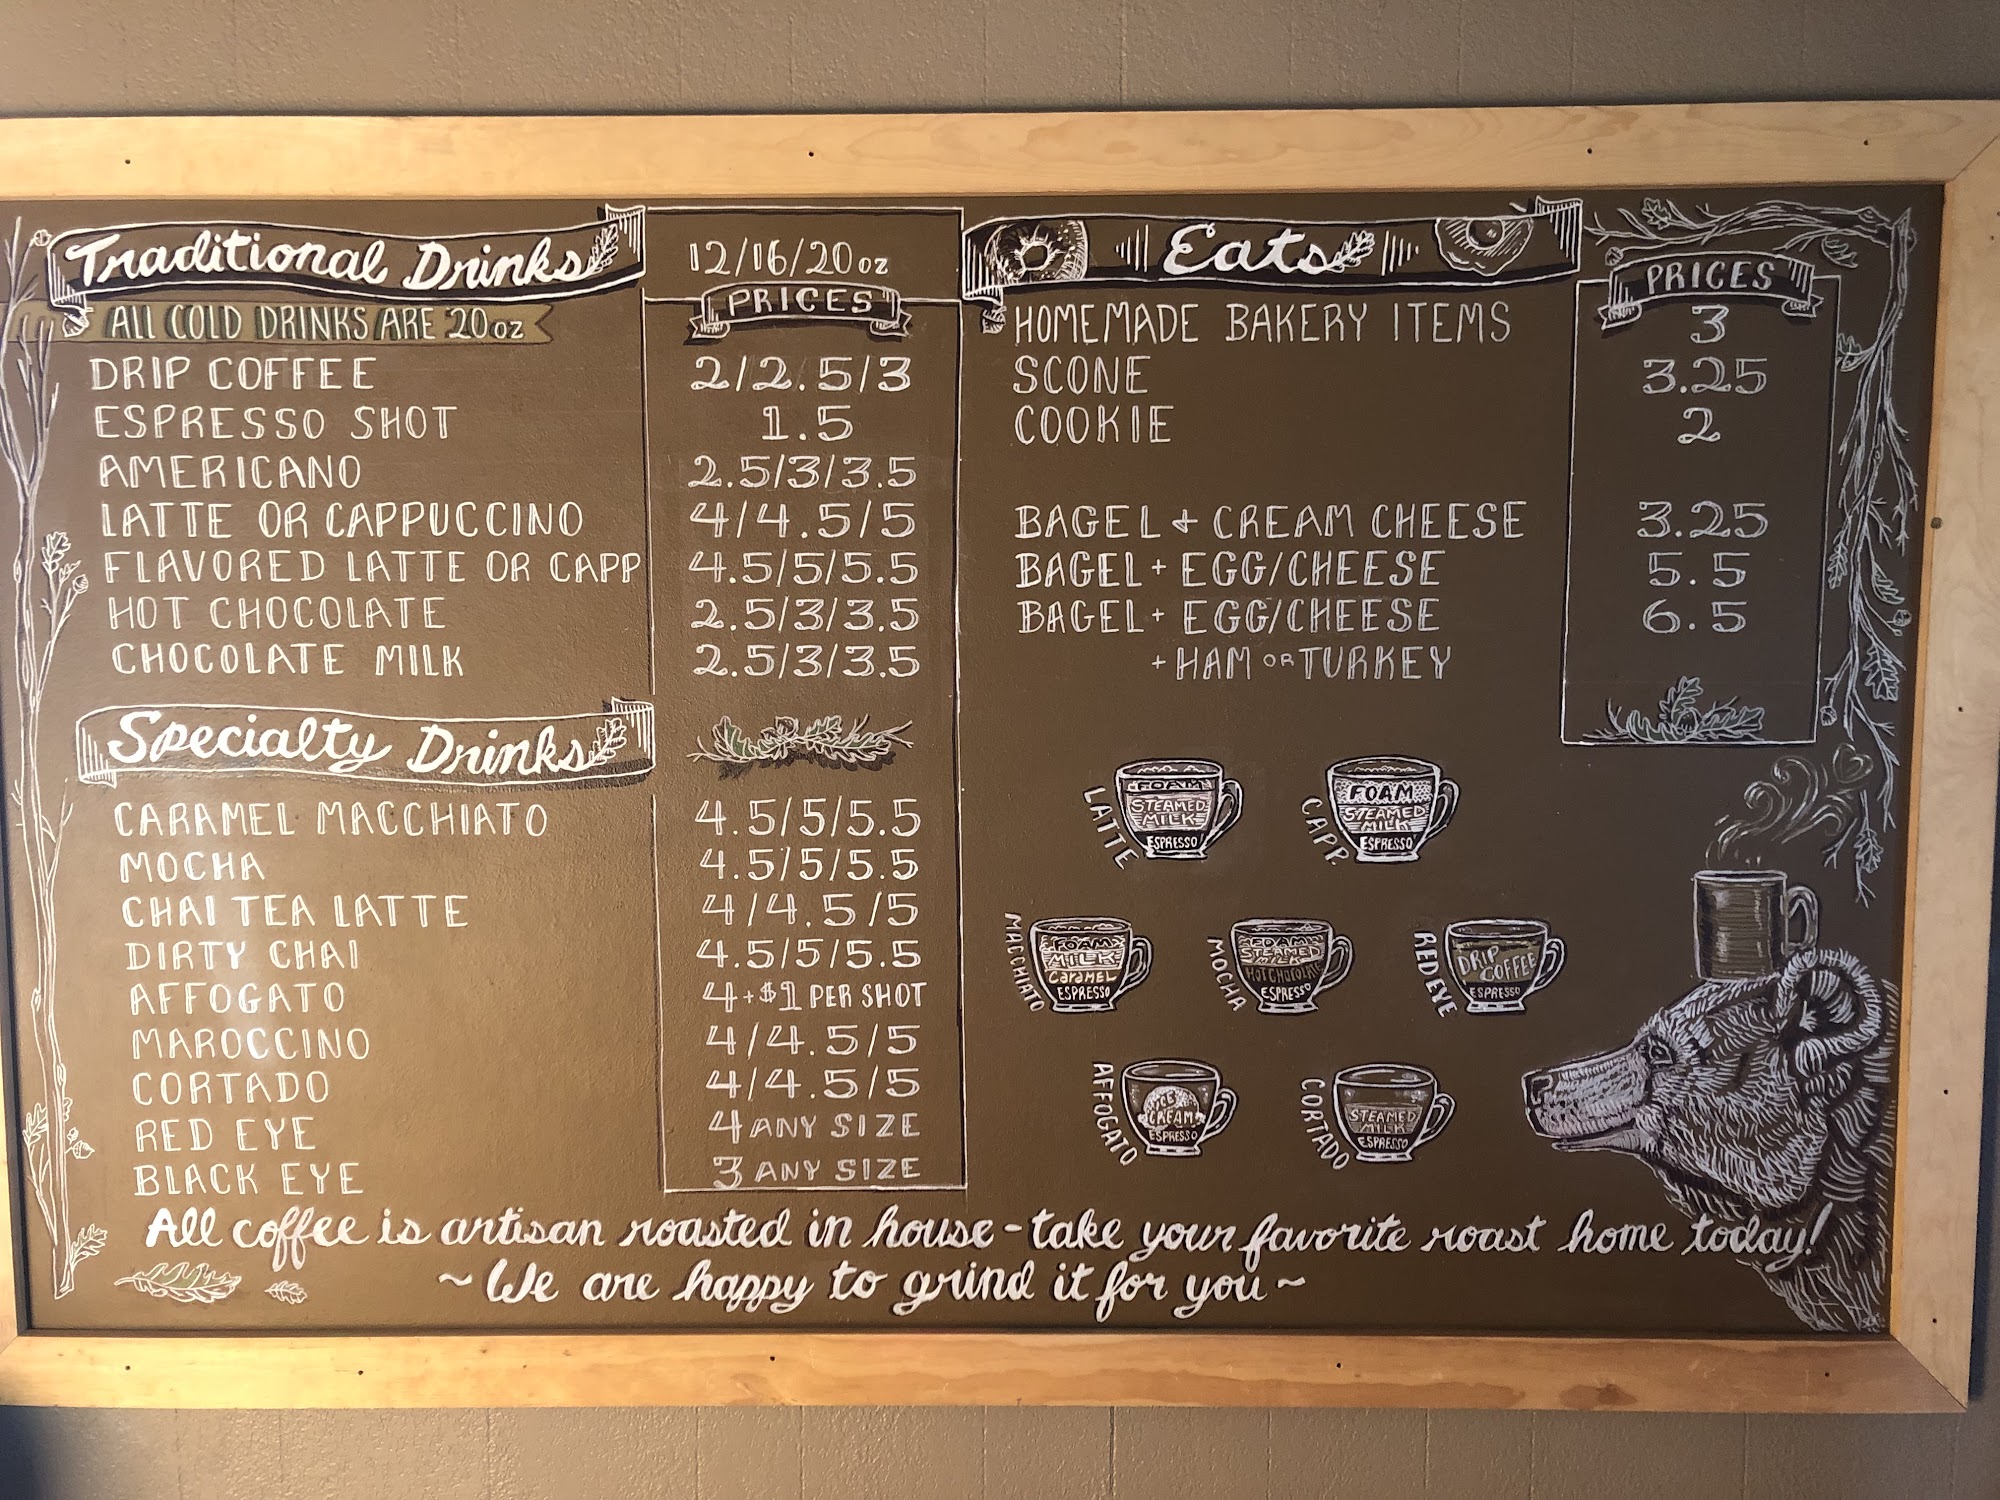 Traditional Drinks
12/16/20oz
PRICES
ALL COLD DRINKS ARE 20oz
DRIP COFFEE 2/2.5/3
ESPRESSO SHOT 1.5
AMERICANO 2.5/3/3.5
LATTE OR CAPPUCCINO 4/4.5/5
FLAVORED LATTE OR CAPP 4.5/5/5.5
HOT CHOCOLATE 2.5/3/3.5
CHOCOLATE MILK 2.5/3/3.5
Specialty Drinks
CARAMEL MACCHIATO 4.5/5/5.5
MOCHA 4.5/5/5.5
CHAI TEA LATTE 4/4.5/5
DIRTY CHAI 4.5/5/5.5
AFFOGATO 4+$1 PER SHOT
MAROCCINO 4/4.5/5
CORTADO 4/4.5/5
RED EYE 4 ANY SIZE
BLACK EYE 3 ANY SIZE
Eats
PRICES
HOMEMADE BAKERY ITEMS 3
SCONE 3.25
COOKIE 2
BAGEL + CREAM CHEESE 3.25
BAGEL + EGG/CHEESE 5.5
BAGEL + EGG/CHEESE 6.5
+ HAM OR TURKEY
LATTE
FOAM
STEAMED
MILK
ESPRESSO
CAPP.
FOAM
STEAMED
MILK
ESPRESSO
MACCHIATO
FOAM
MILK
CARAMEL
ESPRESSO
MOCHA
FOAM
STEAMED
MILK
HOT CHOCOLATE
ESPRESSO
RED EYE
DRIP
COFFEE
ESPRESSO
AFFOGATO
ICE
CREAM
ESPRESSO
CORTADO
STEAMED
MILK
ESPRESSO
All coffee is artisan roasted in house - take your favorite roast home today!
~ We are happy to grind it for you ~